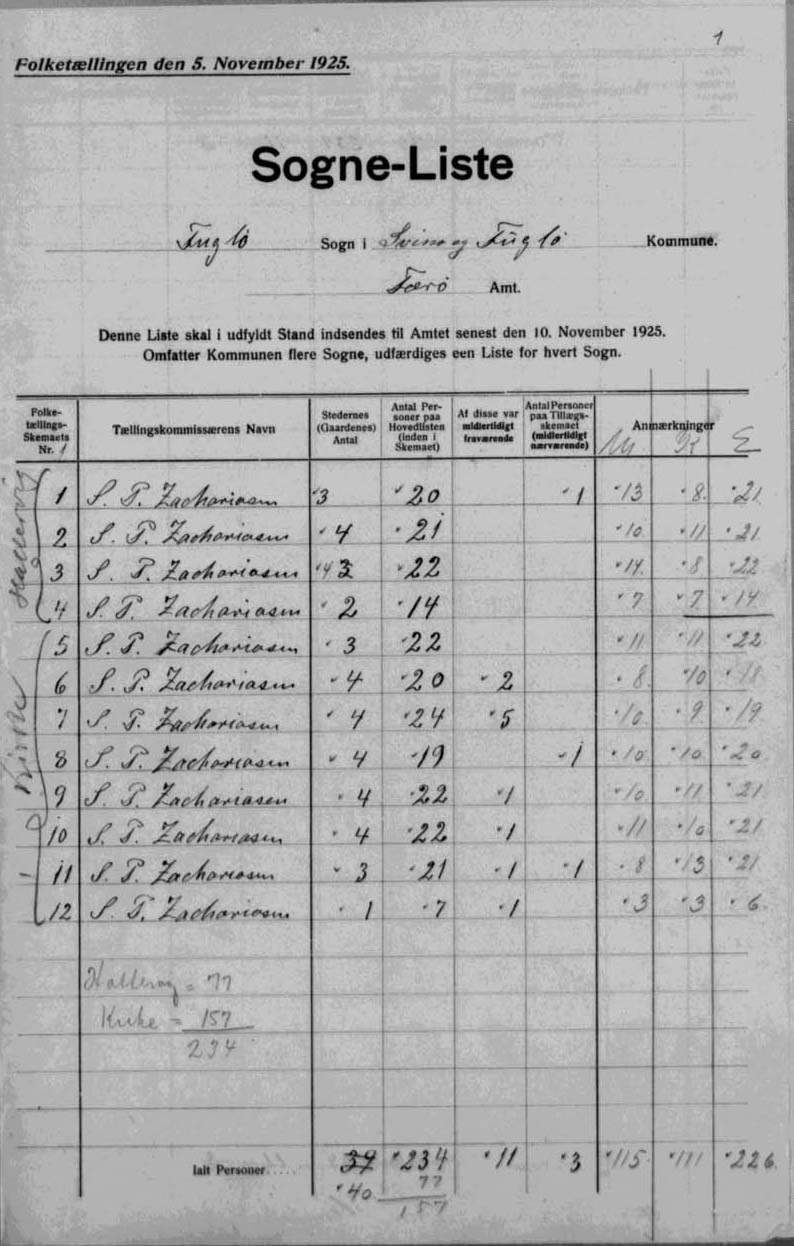 1
Folketællingen den 5. November 1925.
Sogne-Liste
Fuglö Sogn i Svinø og Fuglö Kommune.
Færö Amt.
Denne Liste skal i udfyldt Stand indsendes til Amtet senest den 10. November 1925.
Omfatter Kommunen flere Sogne, udfærdiges een Liste for hvert Sogn.
Folketællings-Skemaets Nr. 1 Tællingskommissærens Navn Stedernes (Gaardenes) Antal Antal Personer paa Hovedlisten (inden i Skemaet) Af disse var midlertidigt fraværende Antal Personer paa Tillægsskemaet (midlertidigt nærværende) Anmærkninger
M K E
Hattervig
1 S. P. Zachariasen 3 20 1 13 8 21
2 S. P. Zachariasen 4 21 10 11 21
3 S. P. Zachariasen 4 3 22 14 8 22
4 S. P. Zachariasen 2 14 7 7 14
Kirke
5 S. P. Zachariasen 3 22 11 11 22
6 S. P. Zachariasen 4 20 2 8 10 18
7 S. P. Zachariasen 4 24 5 10 9 19
8 S. P. Zachariasen 4 19 1 10 10 20
9 S. P. Zachariasen 4 22 1 10 11 21
10 S. P. Zachariasen 4 22 1 11 10 21
11 S. P. Zachariasen 3 21 1 1 8 13 21
12 S. P. Zachariasen 1 7 1 3 3 6
Hattervig = 77
Kirke = 157
234
Ialt Personer..... 39 234 11 3 115 111 226
40 77
157